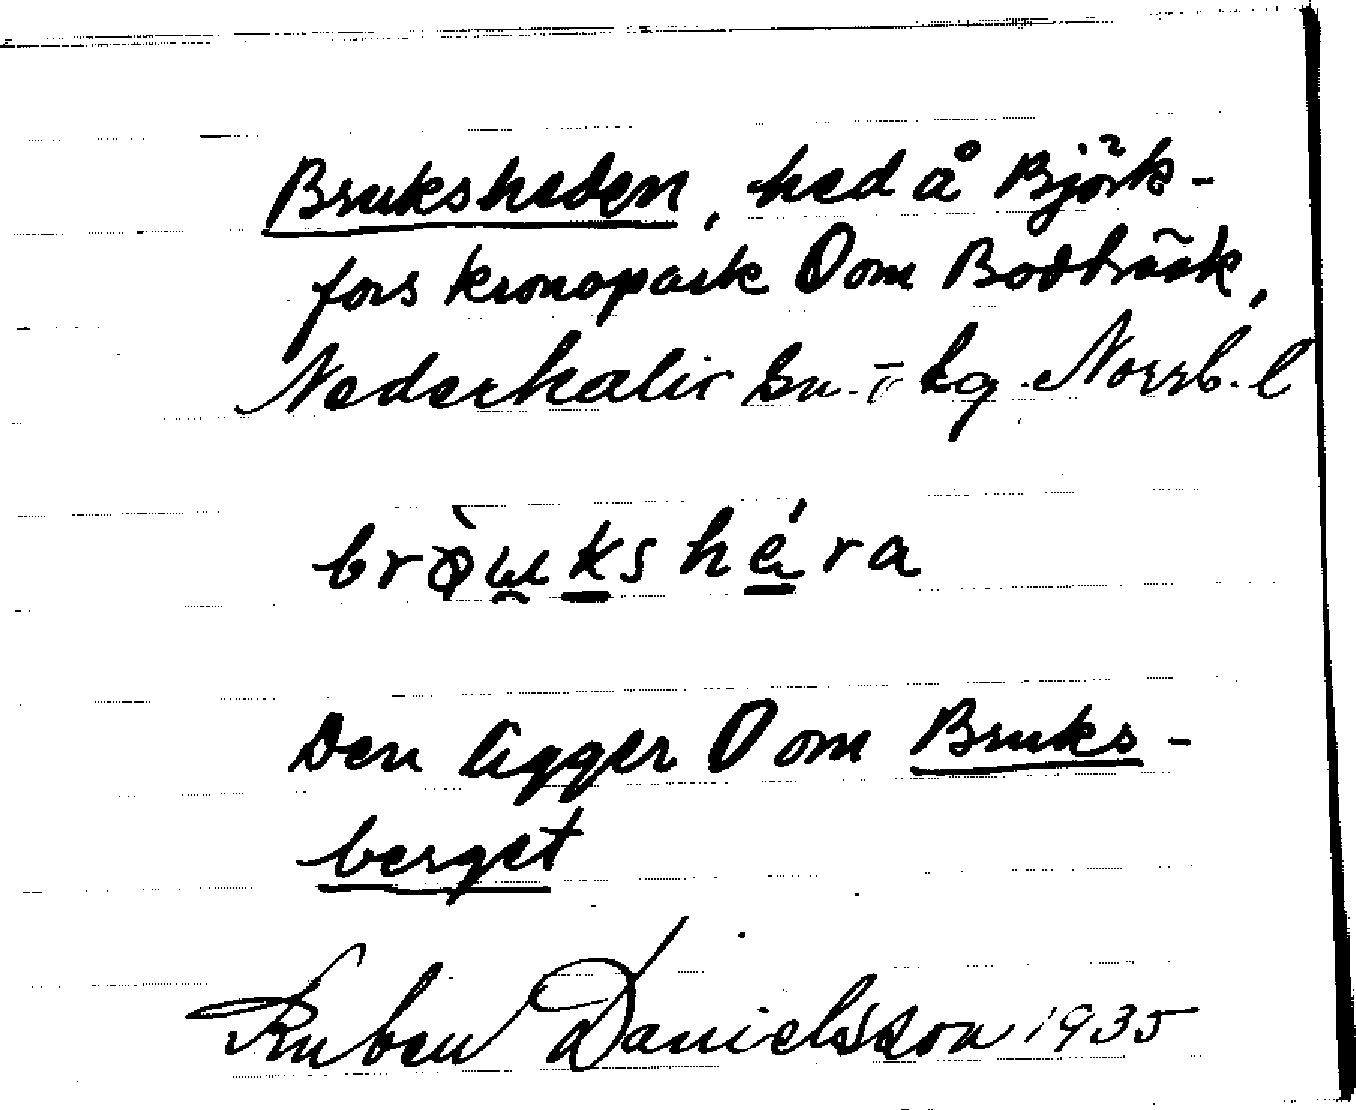 Bruksheden, hed å Björk-
fors kronopark O om Bodträsk,
Nederkalix sn. Norrb. l
Den ligger O om Bruks-
berget
Ruben Danielsson 1935